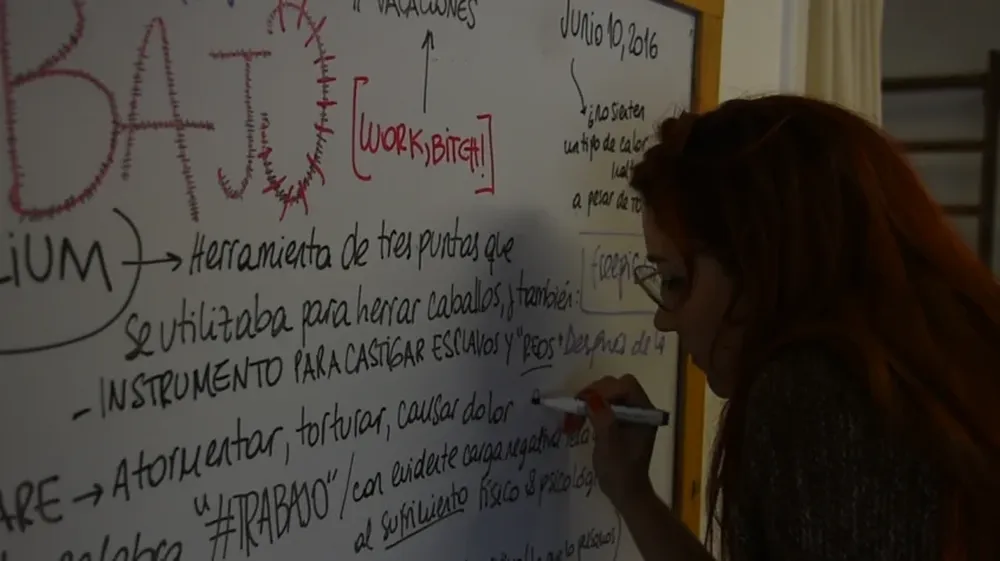 VACACIONES
BAJO
[WORK, BITCH!]
Junio 10, 2016
¿no sienten
un tipo de calor
a pesar de
LIUM → Herramienta de tres puntas que
se utilizaba para herrar caballos, y también:
- INSTRUMENTO PARA CASTIGAR ESCLAVOS Y "REOS" Después de la
ARE → Atormentar, torturar, causar dolor
palabra "#TRABAJO" / con evidente carga negativa
al sufrimiento físico & psicológ